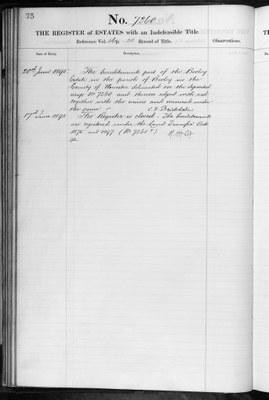 75
No. 7260
THE REGISTER of ESTATES with an Indefeasible Title
Reference Vol. Record of Title.
Date of Entry. Description. Observations.
22nd June 1898 The hereditaments part of the Beoley
Estate in the parish of Beoley in the
County of Worcester delineated on the deposited
map No 7260 and thereon edged with red
together with the mines and minerals under
the same
17th June 1898 The Register is closed. The hereditaments
are registered under the Land Transfer Acts
1875 and 1897 (No 7260)